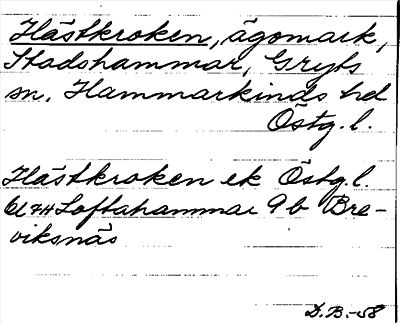 Hästkroken, ägomark,
Stadshammar, Gryts
sn. Hammarkinds hd
Östg.l.
Hästkroken ek Östg.l.
Loftahammar 9b Bre-
viksnäs
D.B.-58